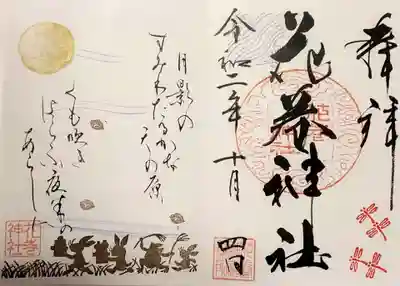 奉拝
神社
令和二年 十月 四日
月影の
すみわたるかな
天の原
くも吹き
はらふ夜半の
あらしに
神社